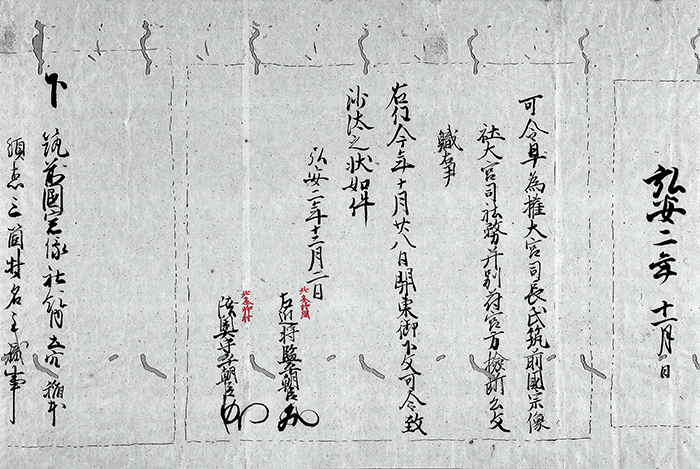 弘安二年十一月日
可令早為権大宮司長氏筑前國宗像
社大宮司社務并別府宮方撿所公文
職事
右任今年十月廿八日関東御下文可令致
沙汰之状如件
弘安二年十二月二日
北条時国
左近将監平朝臣
北条時村
陸奥守平朝臣
下 筑前國宗像社領 稲本
須恵三箇村名主職事